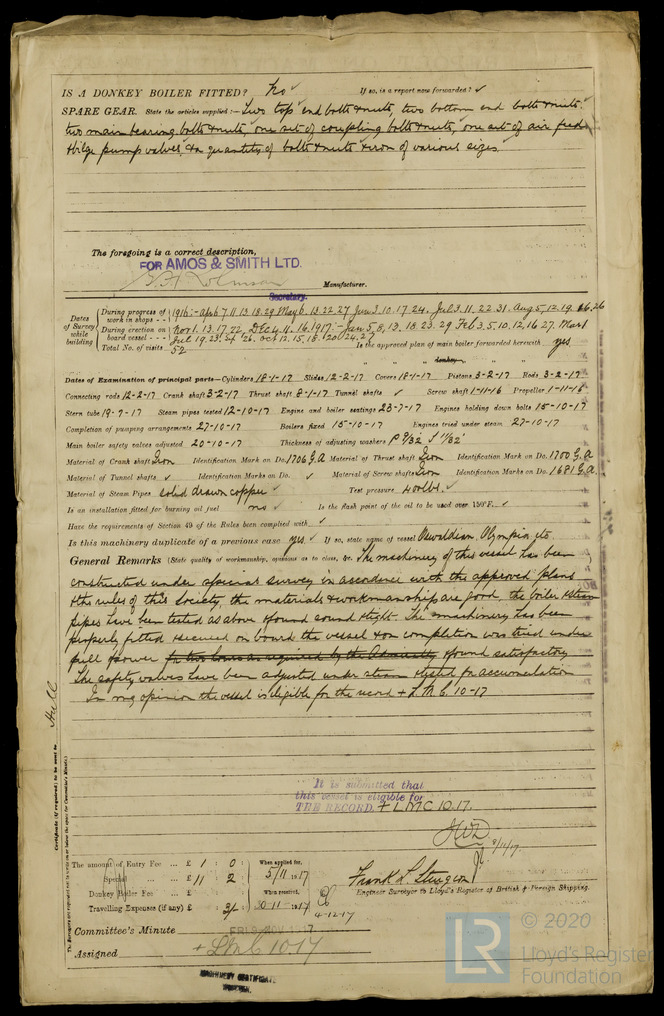 IS A DONKEY BOILER FITTED? No If so, is a report now forwarded? ✓
SPARE GEAR. State the articles supplied:— Two top end bolts & nuts, two bottom end bolts & nuts
two main bearing bolts & nuts, one set of coupling bolts & nuts, one set of air feed
& bilge pump valves, & a quantity of bolts & nuts & iron of various sizes
The foregoing is a correct description,
FOR AMOS & SMITH LTD.
Manufacturer.
Secretary.
Dates of Survey while building
During progress of work in shops - - 1916:- Apl 6 7 11 13 18 29 May 6 13 22 27 Jun 3 10 17 24 Jul 3 11 22 31 Aug 5 12 19 26
During erection on board vessel - - - Nov 1 13 17 22 Dec 4 11 16 1917:- Jan 5 8 13 18 23 29 Feb 3 5 10 12 16 27 Mar 1
Jul 19 23 Sep 26 Oct 12 15 18 20 24 27
Total No. of visits 52 Is the approved plan of main boiler forwarded herewith yes
" " " donkey " " "
Dates of Examination of principal parts—Cylinders 18-1-17 Slides 12-2-17 Covers 18-1-17 Pistons 3-2-17 Rods 3-2-17
Connecting rods 12-2-17 Crank shaft 3-2-17 Thrust shaft 8-1-17 Tunnel shafts ✓ Screw shaft 1-11-16 Propeller 1-11-16
Stern tube 19-7-17 Steam pipes tested 12-10-17 Engine and boiler seatings 23-7-17 Engines holding down bolts 15-10-17
Completion of pumping arrangements 27-10-17 Boilers fixed 15-10-17 Engines tried under steam 27-10-17
Main boiler safety valves adjusted 20-10-17 Thickness of adjusting washers P 9/32 S 11/32
Material of Crank shaft Iron Identification Mark on Do. 1706 G.A Material of Thrust shaft Iron Identification Mark on Do. 1700 G.A
Material of Tunnel shafts ✓ Identification Marks on Do. ✓ Material of Screw shafts Iron Identification Marks on Do. 1681 G.A.
Material of Steam Pipes solid drawn copper ✓ Test pressure 400lbs. ✓
Is an installation fitted for burning oil fuel no ✓ Is the flash point of the oil to be used over 150°F. ✓
Have the requirements of Section 49 of the Rules been complied with ✓
Is this machinery duplicate of a previous case yes ✓ If so, state name of vessel Oswaldian, Olympia, etc
General Remarks (State quality of workmanship, opinions as to class, &c. The machinery of this vessel has been
constructed under special survey in accordance with the approved plans
& the rules of this Society, the materials & workmanship are good, the boiler & steam
pipes have been tested as above & found sound & tight. The machinery has been
properly fitted & secured on board the vessel & on completion was tried under
full power for two hours as required by the Admiralty & found satisfactory
The safety valves have been adjusted under steam & tested for accumulation
In my opinion the vessel is eligible for the record + L.M.C. 10-17
Hull
Certificate (if required) to be sent to
It is submitted that
this vessel is eligible for
THE RECORD. + LMC 10.17.
9/11/17.
The amount of Entry Fee ... £ 1 : 0 : When applied for,
Special ... £ 11 : 2 : 5/11 1917
Donkey Boiler Fee ... £ : : When received,
Travelling Expenses (if any) £ : 3/- : 30-11- 1917
4-12-17
Frank L Sturgeon
Engineer Surveyor to Lloyd's Register of British & Foreign Shipping.
Committee's Minute FRI. 9 NOV 1917
Assigned + LMC 10 17
MACHINERY CERTIFICATE
WRITTEN.
LR © 2020
Lloyd's Register
Foundation